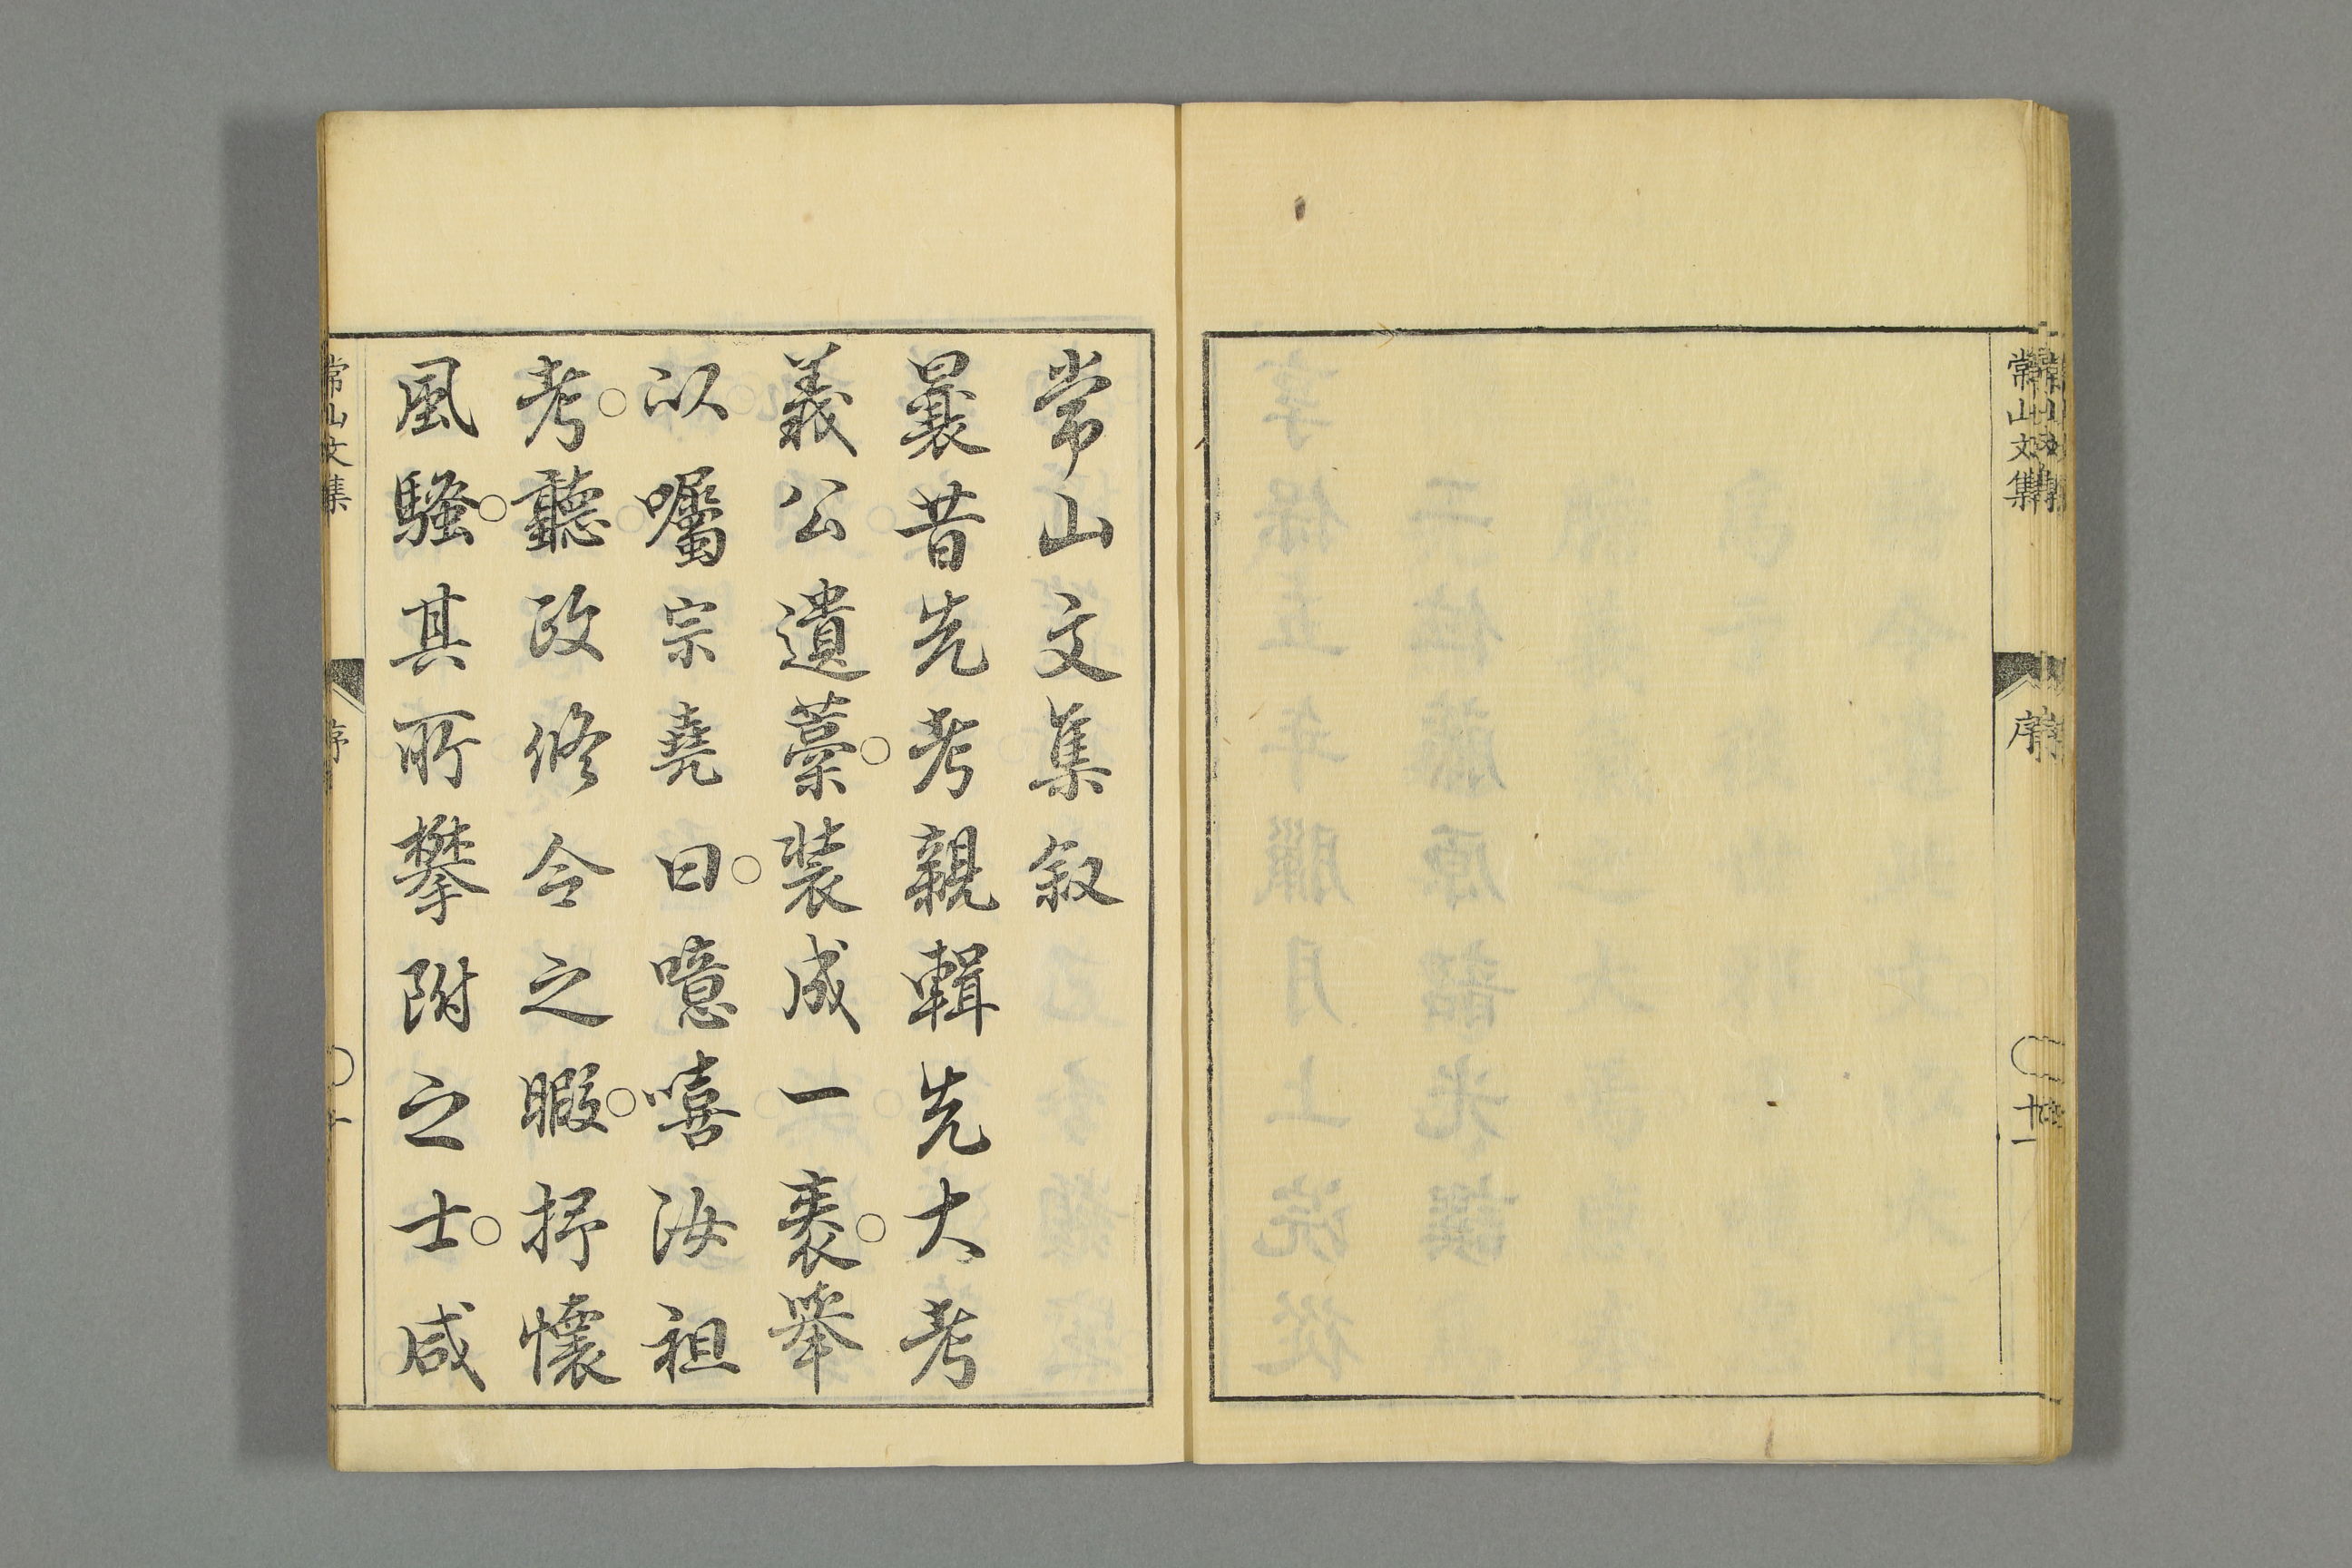 常山文集
序
十一
常山文集叙
曩昔先考親輯先大考
義公遺藁○裝成一袠○舉
以囑宗堯曰○噫嘻汝祖
考○聽政修令之暇○抒懷
風騷○其所攀附之士○咸
常山文集
序